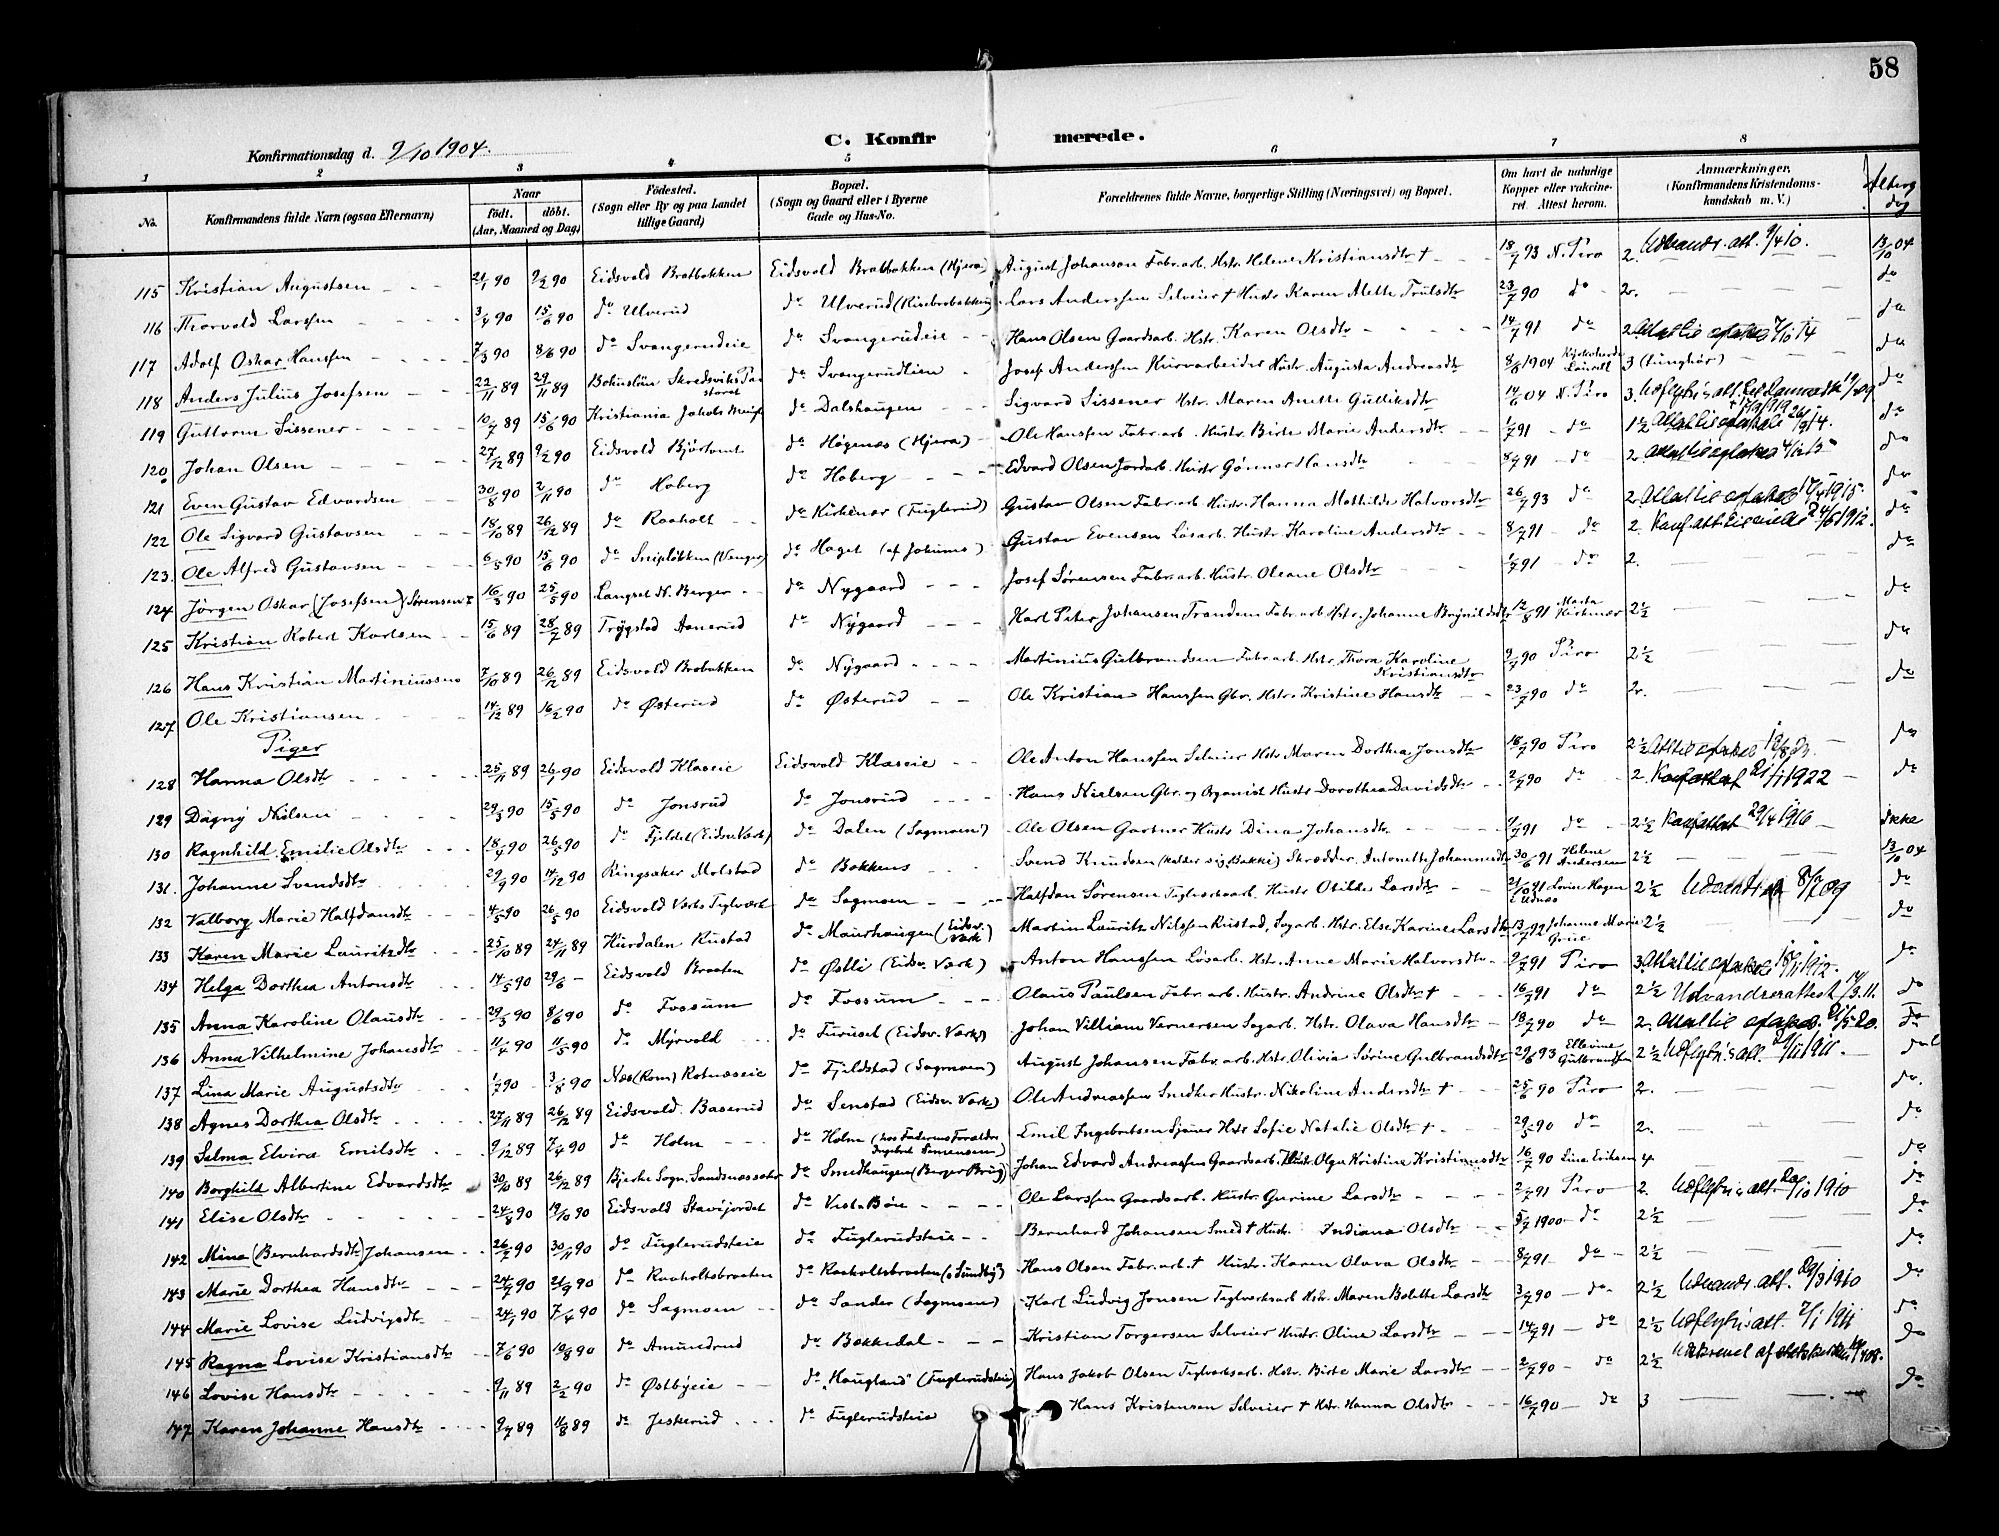 58
C. Konfirmerede.
Konfirmationsdag d. 9/10 1904.
1 2 3 4 5 6 7 8
No. Konfirmandens fulde Navn (ogsaa Efternavn) Naar født. døbt. (Aar, Maaned og Dag) Fødested. (Sogn eller By og paa Landet tillige Gaard) Bopæl. (Sogn og Gaard eller i Byerne Gade og Hus-No. Forældrenes fulde Navne, borgerlige Stilling (Næringsvei) og Bopæl. Om havt de naturlige Kopper eller vakcineret. Attest herom. Anmærkninger. (Konfirmandens Kristendomskundskab m. V.) Alterg dag
115 Kristian Augustsen 21/1 90 9/2 90 Eidsvold Bratbakken Eidsvold Bratbakken (Hjera) August Johanson Fabr. arb. Hstr. Helene Kristiansdtr † 18/7 93 N. Piro 2. Udvandr. att. 9/4 10. 13/10 04
116 Thorvald Larssen 3/4 90 15/6 90 do Ulverud do Ulverud Lars Anderssen Selveier † Hustr Karen Mette Trulsdtr 23/7 90 do 2. do
117 Adolf Oskar Hanssen 7/3 90 8/6 90 do Svangerudeie do Svangerudeie Hans Olsen Gaardsarb. Hstr. Karen Olsdtr 14/7 91 do 2 do
118 Anders Julius Josefsen 22/11 89 29/11 89 Bohuslän Skredsviks Pastorat do Svangerudlien Josef Anderssen Murarbeider Hustr. Augusta Andreasdtr 8/6 1904 3 (tunghør) do
119 Guttorm Sissener 10/7 89 15/6 90 Kristiania do Dalshaugen Sigvard Sissener Hstr. Maren Anette Gulliksdtr 14/6 04 N. Piro 3. do
120 Johan Olsen 27/12 89 9/2 90 Eidsvold do Høgenæs (Hjera) Ole Hanssen Fabr. arb. Hustr. Birte Marie Andersdtr 1/7 91 do 1½ do
121 Even Gustav Edvardsen 30/8 90 2/11 90 do Hoberg do Hoberg Edvard Olsen Jordarb. Hustr Gunnor Hansdtr 8/7 91 do 2. do
122 Ole Sigvard Gustavsen 18/10 89 26/12 89 do Raaholt do Kirkenær (Fuglerud) Gustav Olsen Fabr. arb Hustr. Hanna Mathilde Halvorsdtr 26/7 93 do 2. do
123. Ole Alfred Gustavsen 6/5 90 15/6 90 do Sniplokken (Venger) do Haget (af Jokums) Gustav Evensen Løsarb. Hustr Karoline Andersdtr 8/7 91 do 2. do
124 Jørgen Oskar (Josefsen) Sørensen 16/3 90 25/5 90 Langset N. Berger do Nygaard Josef Sørensen Fabr. arb. Hustr. Oleane Olsdtr 1/7 91 do 2. do
125 Kristian Robert Karlsen 15/6 89 28/7 89 Trøgstad Aanerud do Nygaard Karl Peter Johansen Trandem Fabr. arb Hstr. Johanne Brynildsdtr 12/8 91 Marta Kirkenær 2½ do
126 Hans Kristian Martiniussen 7/10 89 26/12 89 Eidsvold Brobakken do Nygaard Martinius Gulbrandsen Fabr. arb. Hstr. Thora Karoline Kristiansdtr 9/7 90 Piro 2½ do
127 Ole Kristiansen 14/12 89 16/2 90 do Østerud do Østerud Ole Kristian Hanssen Gbr. Hstr. Kristine Hansdtr 23/7 90 do 2. do
Piger
128 Hanna Olsdtr 25/11 89 26/1 90 Eidsvold Klaseie Eidsvold Klaseie Ole Anton Hanssen Selveier Hstr Maren Dorthea Jonsdtr 18/7 90 Piro 2½ do
129 Dagny Nielsen 29/3 90 15/5 90 do Jonsrud do Jonsrud Hans Nielsen Gbr. og Organist Hustr Dorothea Davidsdtr 2/7 90 do 2. 21/1 1922 do
130 Ragnhild Emilie Olsdtr 18/4 90 26/5 90 do Fjeldet (Eidsv. Værk) do Dalen (Sagmoen) Ole Olsen Gartner Hustr Dina Johansdtr 9/7 91 do 2½ 29/4 1916 ikke
131. Johanne Svendsdtr 29/9 90 14/12 90 Ringsaker Molstad do Bakkens Svend Knudsen (kalder sig Bakke) Skrædder. Antonette Johannesdtr 30/6 91 Helene Andersen 2½ 13/10 04
132 Valborg Marie Halfdansdtr 4/5 90 26/5 90 Eidsvold Værks Teglværk do Sagmoen Halfdan Sørensen Teglverksarb. Hustr Otilde Larsdtr 21/10 91 Lovise Hagen 2½ 8/2 09 do
133 Karen Marie Lauritzdtr 25/10 89 24/11 89 Hurdalen Rustad do Maurhaugen (Eidsv. Værk) Martin Lauritz Nilssen Rustad, Sagarb. Hstr. Else Karine Larsdtr 13/7 92 Johanne Marie Grue 2½ do
134 Helga Dorthea Antonsdtr 14/5 90 29/6 – Eidsvold Braaten do Østli (Eidsv. Værk) Anton Hanssen Løsarb. Hstr. Anne Marie Halvorsdtr 9/7 91 Piro 3. do
135 Anna Karoline Olausdtr 29/3 90 8/6 90 do Fossum do Fossum Olaus Paulsen Fabr. arb. Hustr. Andrine Olsdtr † 16/7 91 do 2½ Udvandrerattest 14/3. 11. do
136 Anna Vilhelmine Johansdtr 11/4 90 11/5 90 do Myrvold do Furuset (Eidsv. Værk) Johan Villiam Vernersen Sagarb. Hstr. Olava Hansdtr 18/7 90 do 2. do
137 Lina Marie Augustsdtr 1/7 90 3/8 90 Næs (Rom.) Rotnæseie do Fjeldstad (Sagmoen) August Johansen Fabr. arb. Hstr. Olivia Sørine Gulbrandsdtr 29/6 93 Ellevine Gulbrandsen 2½ Udflytn.s att. do
138 Agnes Dorthea Olsdtr 27/11 89 26/12 89 Eidsvold. Baserud do Senstad (Eidsv. Værk) Ole Andreassen Snedker Hustr. Nikoline Andersdtr † 25/6 90 Piro 2. do.
139 Selma Elvira Emilsdtr 9/12 89 7/4 90 do Holm do Holm (hos Faderens Forældre Ingebret Simensen) Emil Ingebretsen Hstr Sofie Natalie Olsdtr † 29/5 90 do 2. do
140 Borghild Albertine Edvardsdtr 30/10 89 26/12 89 Bjerke Sogn. Sandsnessæter do Smedhaugen (Berger Brug) Johan Edvard Andreassen Gaardsarb. Hustr. Olga Kristine Kristiansdtr 16/7 90 Lina Eriksen 4 do
141 Elise Olsdtr 24/8 90 19/10 90 Eidsvold Stavijordet do Vest-Bøn Ole Larssen Gaardsarb. Hustr. Gurine Larsdtr 2/7 91 Piro 2. Udflytn.s att. 20/10 1910 do
142 Mina (Bernhardsdtr) Johansen 26/7 90 30/11 90 do Fuglerudsteie do Fuglerudsteie Bernhard Johansen Smed † Hustr. Indiana Olsdtr 5/7 1900 do 2½ do
143 Marie Dorthea Hansdtr 24/7 90 21/9 90 do Raaholtsbraaten do Raaholtsbraaten ("Sundby") Hans Olsen Fabr. arb. † Hustr. Karen Olava Olsdtr 8/7 91 do 2½ do
144 Marie Lovise Ludvigsdtr 24/1 90 7/4 90 do Sagmoen do Sander (Sagmoen) Karl Ludvig Jonsen Teglverksarb Hstr. Maren Bolette Larsdtr 3/7 90 do 2½ Udvandr. att. 29/3 1910 do
145 Ragna Lovise Kristiansdtr 7/6 90 10/8 90 do Amundrud do Bekkedal Kristian Torgersen Selveier Hustr. Oline Larsdtr 14/7 91 do 2½ Udflytn.s att. 7/1 1911 do
146 Lovise Hansdtr 9/11 89 2/2 90 do Østbyeie do "Haugland" (Fuglerudsteie) Hans Jakob Olsen Teglverksarb. Hstr. Birte Marie Larsdtr 2/7 90 do 2½ do
147 Karen Johanne Hansdtr 9/7 89 11/8 89 do Jeskerud do Fuglerudsteie Hans Kristensen Selveier † Hstr. Hanna Olsdtr 16/7 90 do 3 do